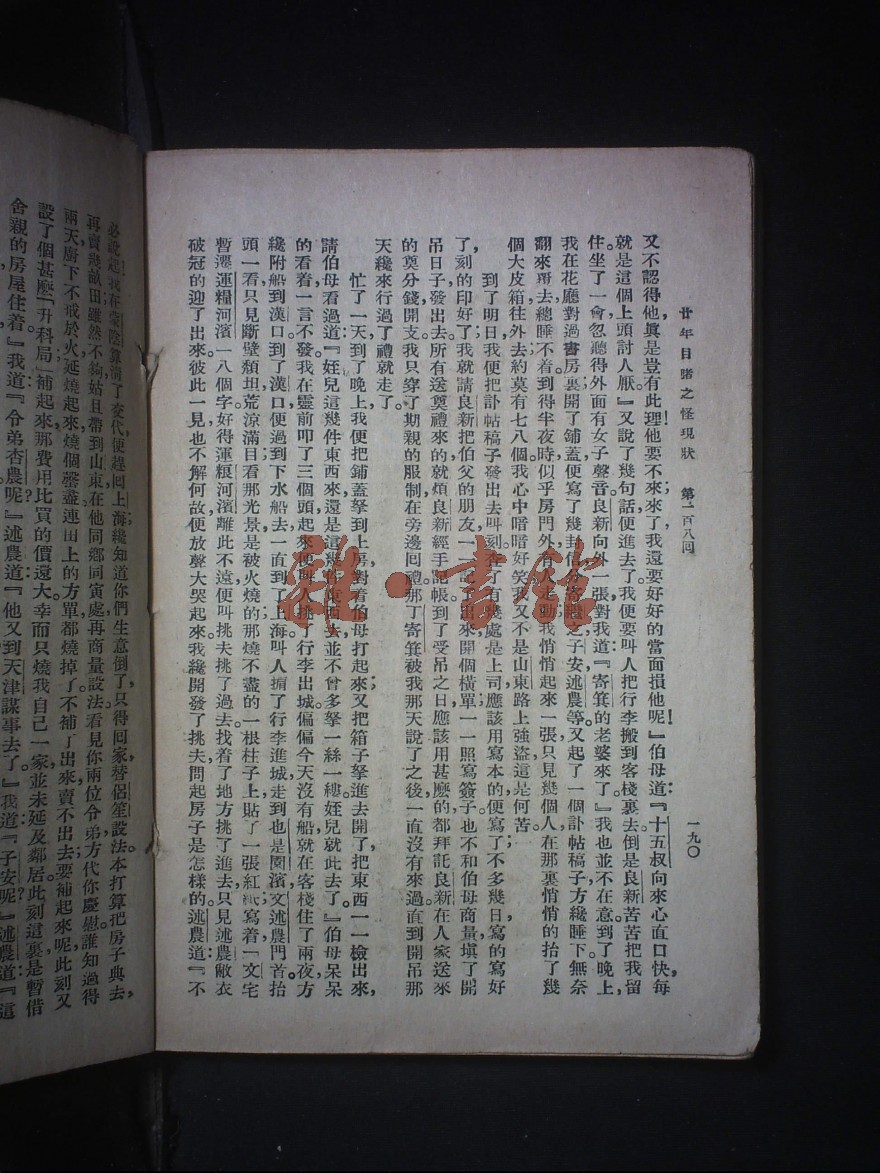 廿年目睹之怪現狀 第一百八回 一九〇
又不認得他,眞是豈有此理!他要不來;來了,我還要好好的當面損他呢!』伯母道:『十五叔向來心直口快,每
就是這個上頭討人厭。』又說了幾句話,便進去了。我便要叫人把行李搬到客棧裏去,倒是良新苦苦把我留
住。坐了一會,忽聽得外面有女子聲音,良新向外一張,對我道:『寄箕的老婆來了。』我也並不在意。到了晚上,
我在花廳對過書房裏開了鋪蓋,便寫了幾封信,分寄繼之、子安、述農等。又起了一個訃帖稿子,方纔睡下。無奈
翻來覆去,總睡不着。到得半夜時,似乎房門外有人走動,我悄悄起來一張,只見幾個人,在那裏悄悄的抬了幾
個大皮箱往外去,約莫有七八個。我心中暗暗好笑,我又不是山東路上強盜,這是何苦。
到了明日,我便把訃帖稿子發出去叫刻。查了有幾處是上司,應該用寫本的,便寫了。不多幾日,寫的寫好
了,刻的印好了,我就請良新把伯父的朋友,一一記了出來,開個橫單,一一照寫簽子,也不和伯母商量,填了開
吊日子,發出去。所有送奠禮來的,就煩良新經手記帳。到了受吊之日,應該用甚麽的,都拜託良新在人家送來
的奠分錢開支。我只穿了期親的服制,在旁邊回禮。那丁寄箕被我那天說了之後,一直沒有來過。直到開吊那
天纔來,行過了禮就走了。
忙了一天,到了晚上,我便把鋪蓋拏到上房,對着伯母打起來;又把箱子拏進去開了,把東西一一檢出來,
請伯母看過,道:『姪兒這幾件東西來,還是這幾件東西去,並不曾多拏一絲一縷。姪兒就此去了。』伯母呆呆
的看着,一言不發。我在靈前叩了三個頭,起來便叫人挑了行李出城。偏偏今天沒有船,就在客棧住了兩夜,方
纔附船到漢口。到了漢口,便過到下水船去,一直到了上海。叫人掮了行李進城,走到也是園濱文述農門首,抬
頭一看,只見斷壁頹垣,荒涼滿目,看那光景是被火燒的。那燒不盡的一根柱子上,貼了一張紅紙,寫着「文宅
暫遷運糧河濱」八個字。好得運糧河濱離此不遠,便叫挑夫挑了過去。找着了地方,挑了進去,只見述農敝衣
破冠的迎了出來。彼此一見,也不解何故,便放聲大哭起來。我纔開發了挑夫,問起房子是怎樣的。述農道:『不
必說起!我在蒙陰算清了交代,便趕回上海,纔知道你們生意倒了,只得回家替侶笙設法。本打算把房子典去,
再賣幾畝田,雖然不夠,姑且帶到山東,在他同鄉同寅處再商量設法。看見你兩位令弟,方代你慶慰,誰知過得
兩天,廚下不戒於火,延燒起來,燒個罄盡,連田上的方單都燒掉了。不補了出來,賣不出去;要補起來呢,此刻又
設了個甚麽「升科局」,補起來,那費用比買的價還大。幸而只燒我自己一家,並未延及鄰居。此刻這裏是暫借
舍親的房屋住着。』我道:『令弟杏農呢?』述農道:『他又到天津謀事去了。』我道:『子安呢?』述農道:『這
雅·書館